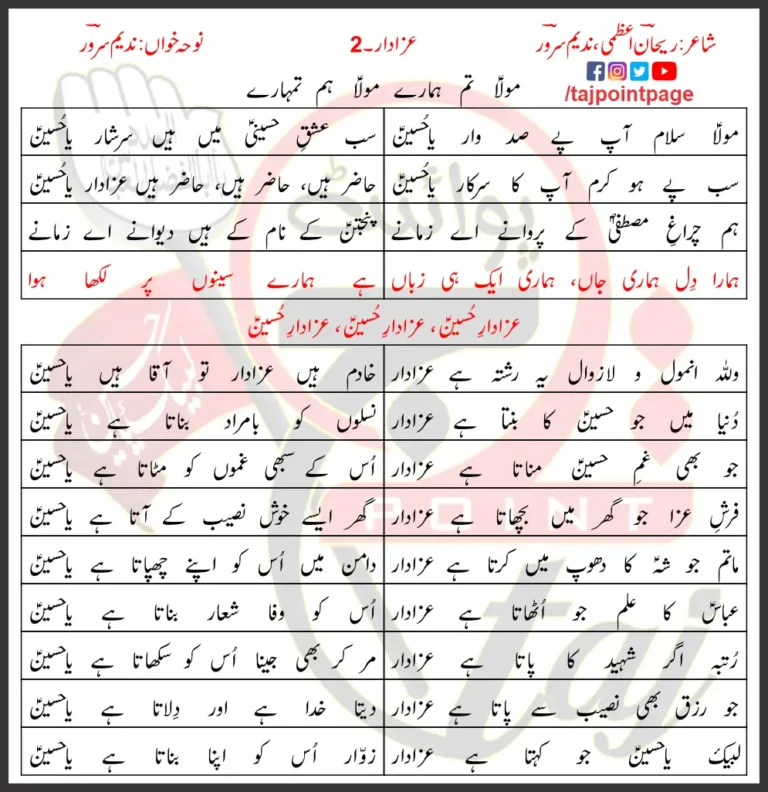 شاعر: ریحان اعظمی، ندیم سرور عزادار۔2 نوحہ خواں: ندیم سرور
/tajpointpage
مولاؑ تم ہمارے مولاؑ ہم تمہارے
مولاؑ سلام آپ پے صد وار یاحُسینؑ سب عشقِ حسینیؑ میں ہیں سرشار یاحُسینؑ
سب پے ہو کرم آپ کا سرکار یاحُسینؑ حاضر ہیں، حاضر ہیں، حاضر ہیں عزادار یاحُسینؑ
ہم چراغِ مصطفیٰؐ کے پروانے اے زمانے پنجتنؑ کے نام کے ہیں دیوانے اے زمانے
ہمارا دِل ہماری جاں، ہماری ایک ہی زباں ہے ہمارے سینوں پر لکھا ہوا
عزادارِ حُسینؑ، عزادارِ حُسینؑ، عزادارِ حُسینؑ
وللہ انمول و لازوال یہ رشتہ ہے عزادار خادم ہیں عزادار تو آقا ہیں یاحسینؑ
دُنیا میں جو حسینؑ کا بنتا ہے عزادار نسلوں کو بامراد بناتا ہے یاحسینؑ
جو بھی غمِ حسینؑ مناتا ہے عزادار اُس کے سبھی غموں کو مٹاتا ہے یاحسینؑ
فرشِ عزا جو گھر میں بچھاتا ہے عزادار گھر ایسے خوش نصیب کے آتا ہے یاحسینؑ
ماتم جو شہؑ کا دھوپ میں کرتا ہے عزادار دامن میں اُس کو اپنے چھپاتا ہے یاحسینؑ
عباسؑ کا علم جو اُٹھاتا ہے عزادار اُس کو وفا شعار بناتا ہے یاحسینؑ
رُتبہ اگر شہید کا پاتا ہے عزادار مر کر بھی جینا اُس کو سکھاتا ہے یاحسینؑ
جو رزق بھی نصیب سے پاتا ہے عزادار دیتا خدا ہے اور دِلاتا ہے یاحسینؑ
لبیک یاحسینؑ جو کہتا ہے عزادار زوّار اُس کو اپنا بناتا ہے یاحسینؑ
پوائنٹ
POINT
taj